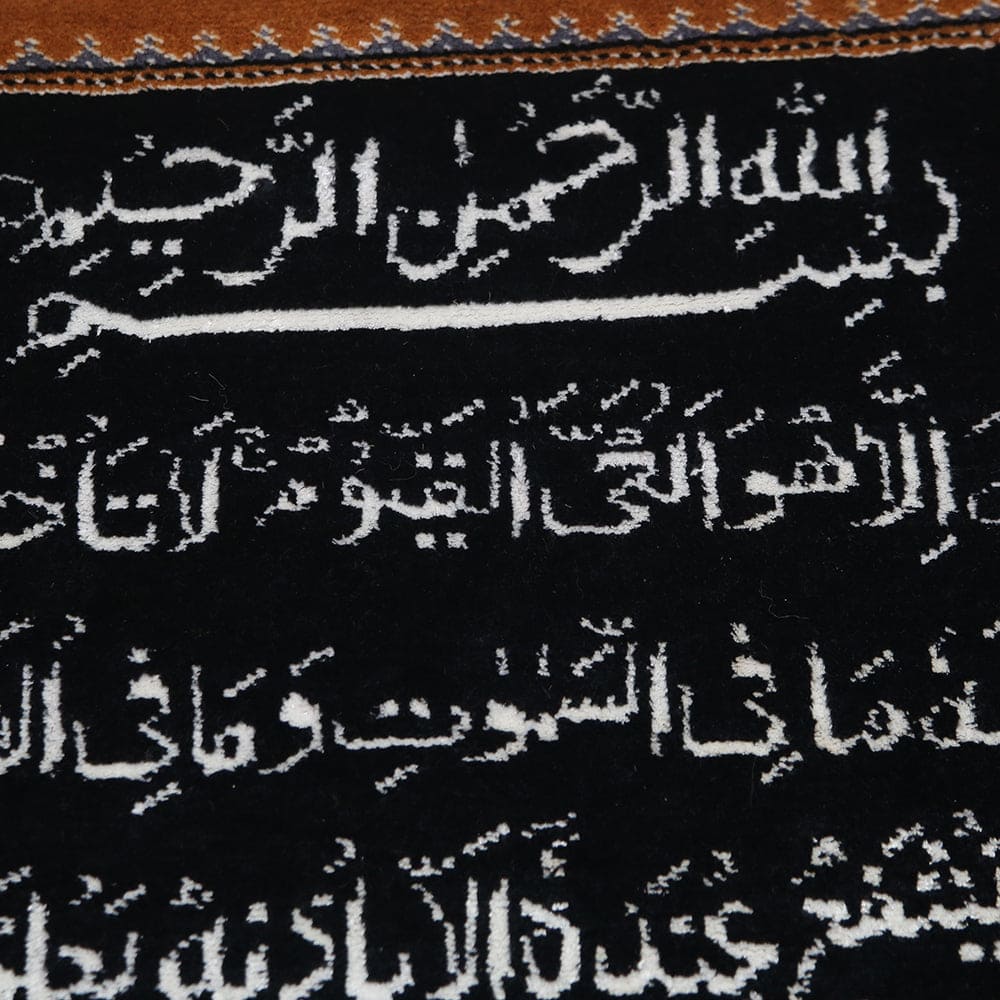 بِسْمِ اللّٰهِ الرَّحْمٰنِ الرَّحِيْمِ
إِلَّا هُوَ الْحَىُّ الْقَيُّوْمُ ۚ لَا تَأْخُ
لَهُ مَا فِى السَّمٰوٰتِ وَمَا فِى الْأَ
يَشْفَعُ عِنْدَهُ إِلَّا بِإِذْنِهِ يَعْلَ